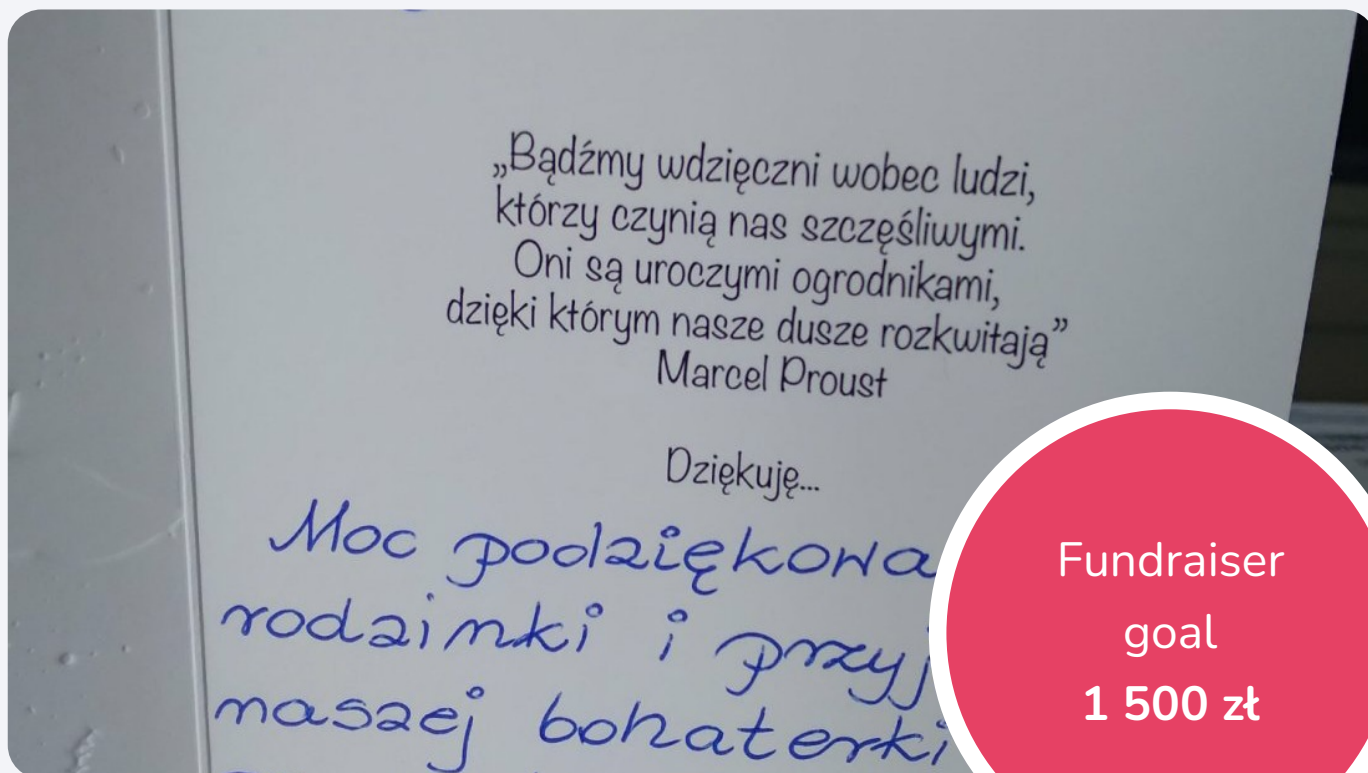 „Bądźmy wdzięczni wobec ludzi,
którzy czynią nas szczęśliwymi.
Oni są uroczymi ogrodnikami,
dzięki którym nasze dusze rozkwitają”
Marcel Proust
Dziękuję...
Moc podziękowa
rodzinki i przyj
naszej bohaterki
Fundraiser
goal
1 500 zł